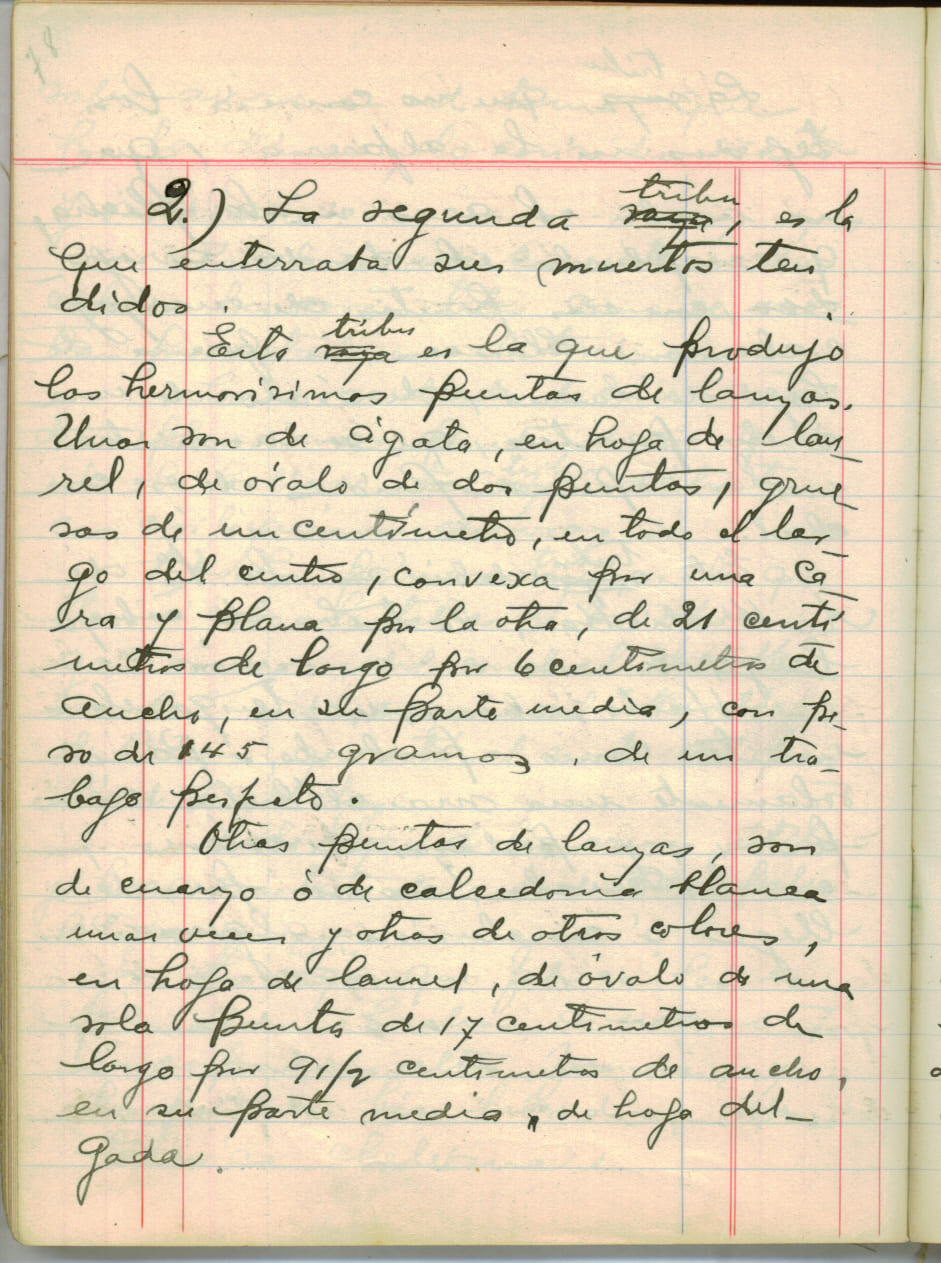 78
2.) La segunda raza tribu, es la
que enterraba sus muertos ten
didos.
Esta raza tribu es la que produjo
las hermosisimas puntas de lanzas.
Unas son de ágata, en hoja de lau_
rel, de óvalo de dos puntas, grue_
sas de un centímetro, en todo el lar_
go del centro, convexa por una ca_
ra y plana por la otra, de 21 centí
metros de largo por 6 centimetros de
ancho, en su parte media, con pe_
so de 145 gramos, de un tra_
bajo perfecto.
Otras puntas de lanzas, son
de cuarzo ó de calsedonia blanca
unas veces y otras de otros colores,
en hoja de laurel, de óvalo de una
sola punta de 17 centimetros de
largo por 9 1/2 centimetros de ancho,
en su parte media, de hoja del_
gada.